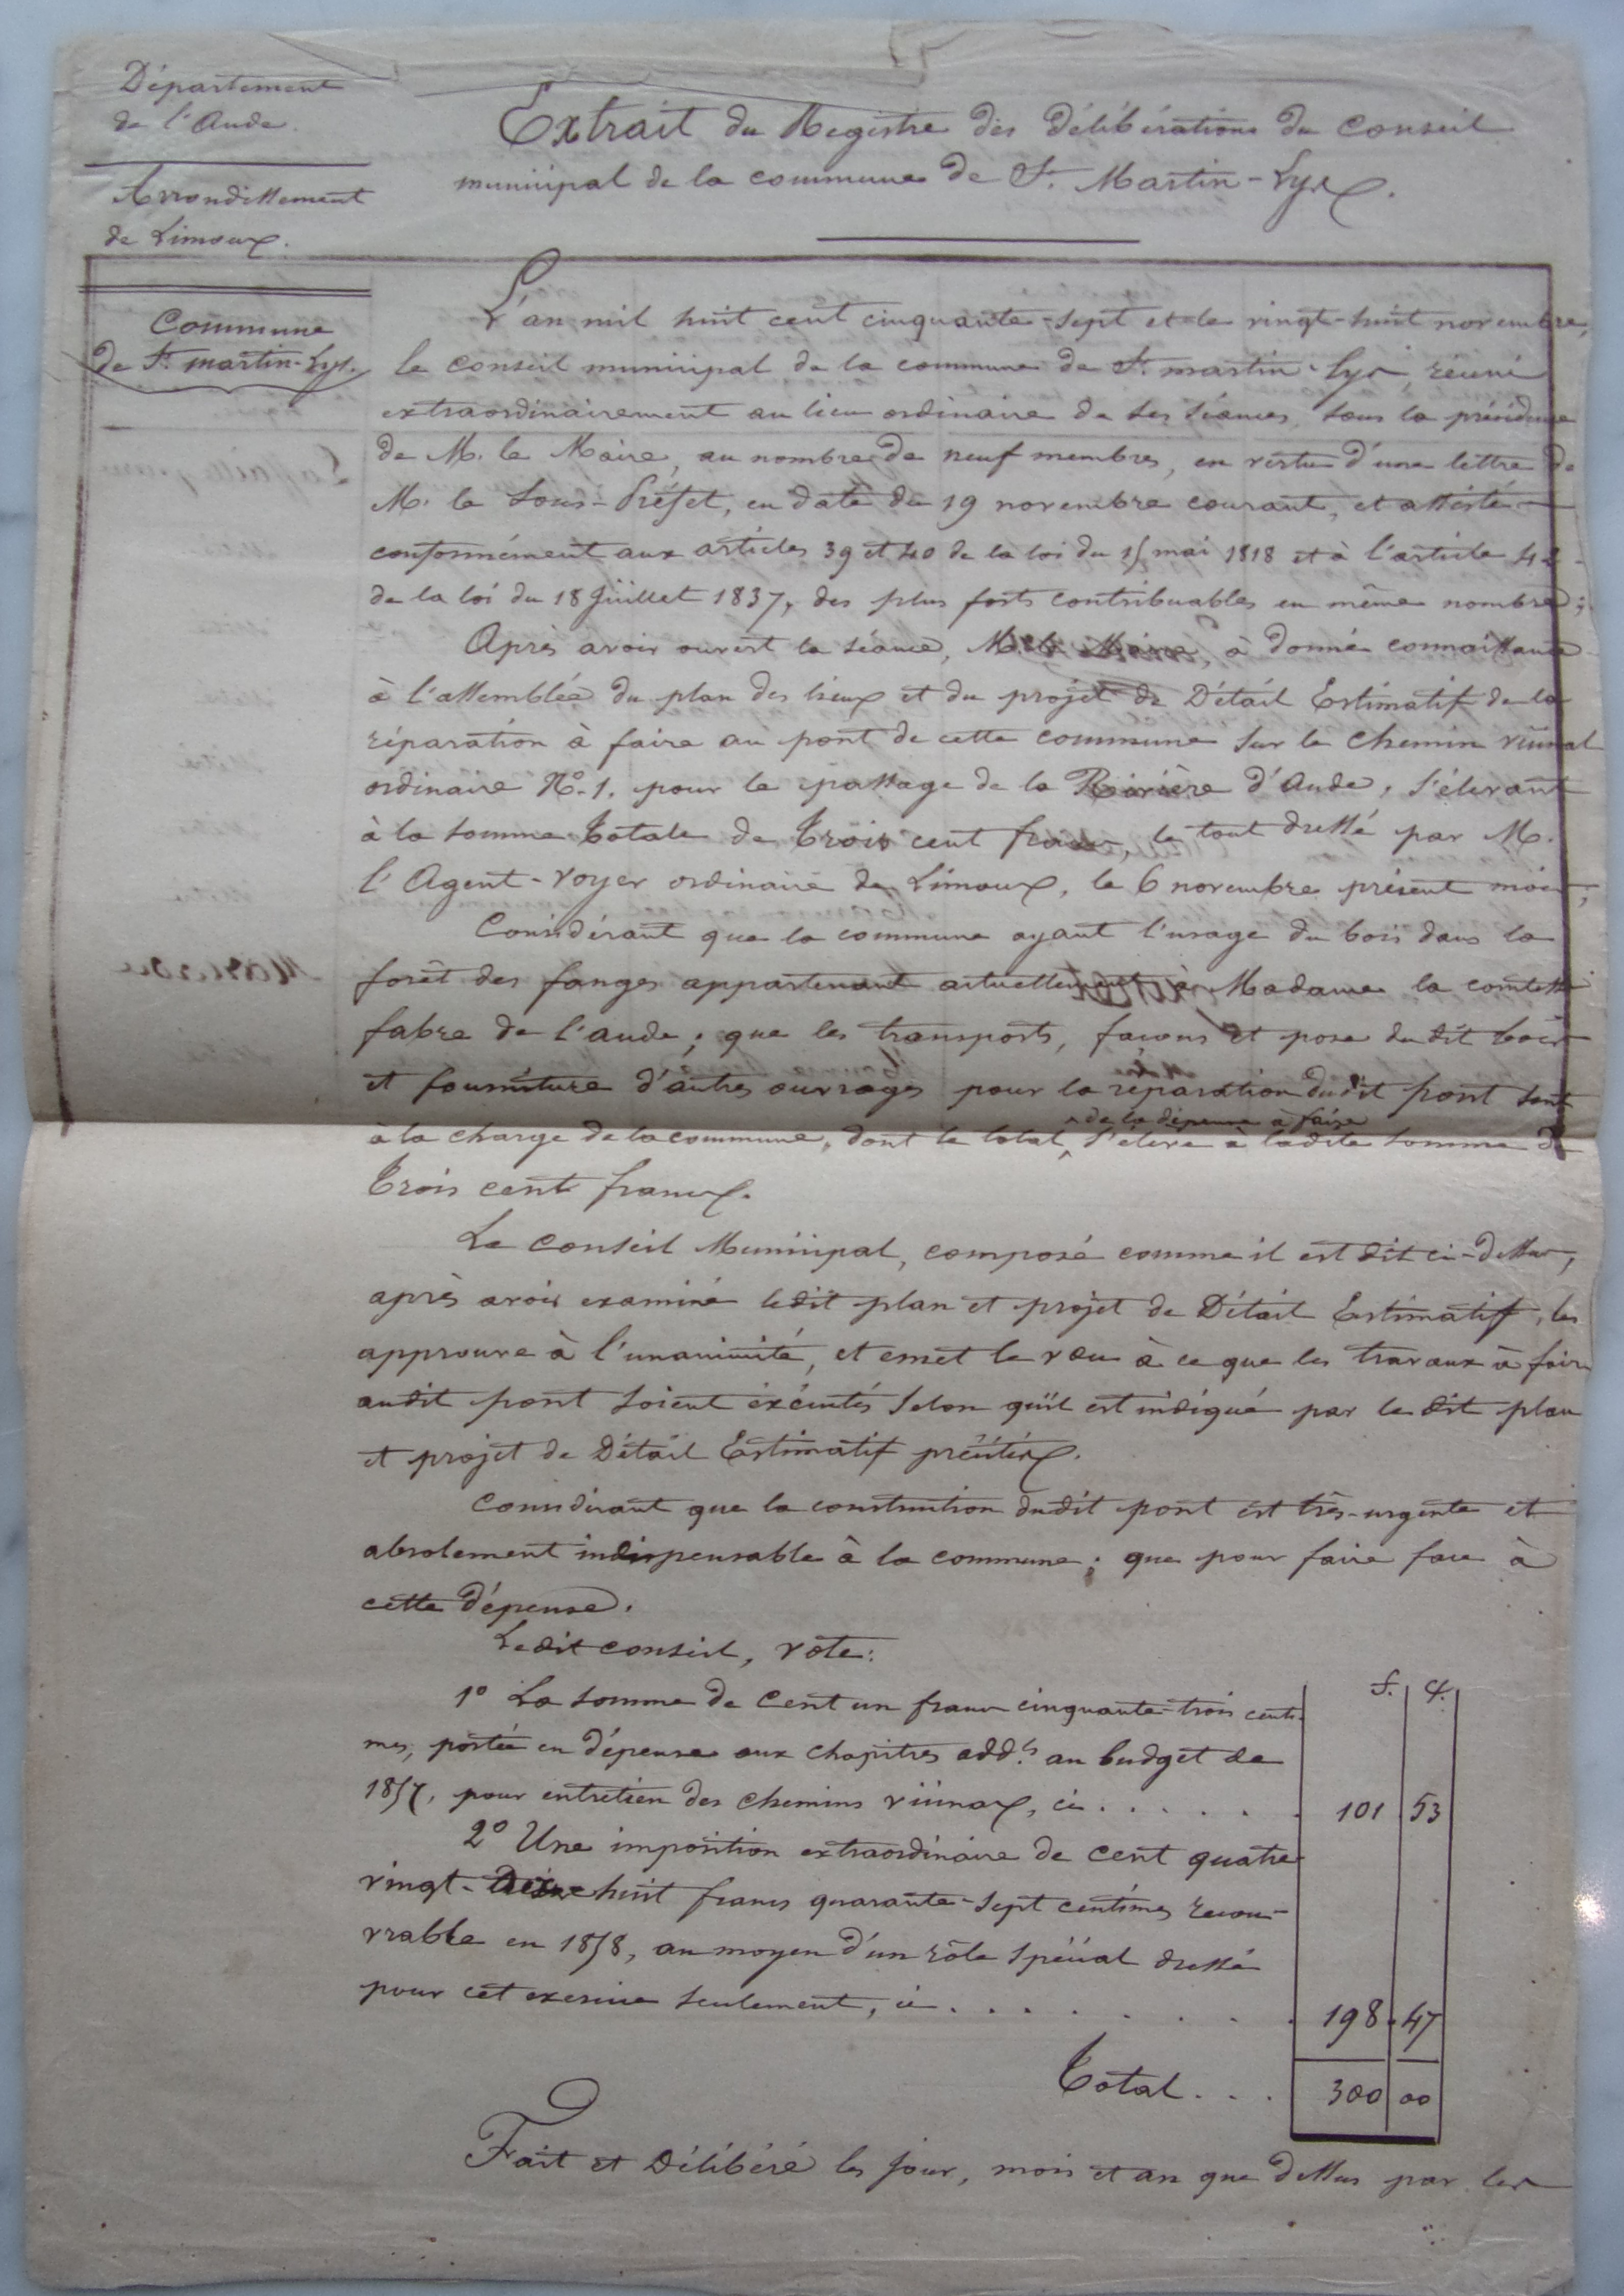 Département
de l'Aude.
Arrondissement
de Limoux.
Commune
de St. martin-Lys.
Extrait du Registre des délibérations du conseil
municipal de la commune de St. Martin-Lys.
L'an mil huit cent cinquante-sept et le vingt-huit novembre,
le conseil municipal de la commune de St. martin-Lys, réuni
extraordinairement au lieu ordinaire de ses séances, sous la présidence
de M. le Maire, au nombre de neuf membres, en vertu d'une lettre de
M. le Sous-Préfet, en date du 19 novembre courant, et assisté
conformément aux articles 39 et 40 de la loi du 15 mai 1818 et à l'article 42
de la loi du 18 Juillet 1837, des plus forts contribuables en même nombre;
Après avoir ouvert la séance, M. le Maire, a donné connaissance
à l'assemblée du plan des lieux et du projet de Détail Estimatif de la
réparation à faire au pont de cette commune sur le chemin vicinal
ordinaire No. 1. pour le passage de la Rivière d'Aude, s'élevant
à la somme totale de trois cent francs, le tout dressé par M.
l'Agent-voyer ordinaire de Limoux, le 6 novembre présent mois;
Considérant que la commune ayant l'usage du bois dans la
forêt des fanges appartenant actuellement à Madame la comtesse
fabre de l'aude; que les transports, façons et pose du dit bois
et fourniture d'autres ouvrages pour la réparation dudit pont sont
à la charge de la commune, dont le total ^ de la dépense à faire s'élève à ladite somme de
trois cent francs.
Le conseil Municipal, composé comme il est dit ci-dessus,
après avoir examiné ledit plan et projet de Détail Estimatif, les
approuve à l'unanimité, et émet le vœu à ce que les travaux à faire
audit pont soient éxécutés selon qu'il est indiqué par le dit plan
et projet de Détail Estimatif précités.
Considérant que la construction dudit pont est très-urgente et
absolement indispensable à la commune; que pour faire face à
cette dépense.
Ledit conseil, vote:
f. c.
1o La somme de Cent un francs cinquante-trois centi-
mes, portée en dépense aux chapitres addls au budget de
1857, pour entretien des chemins vicinaux, ci . . . . . . 101 53
2o Une imposition extraordinaire de cent quatre
vingt-dix huit francs quarante-sept centimes recou-
vrable en 1858, au moyen d'un rôle spécial dressé
pour cet exercice seulement, ci . . . . . . . . 198 47
Total . . . 300 00
Fait et Délibéré les jour, mois et an que dessus par les